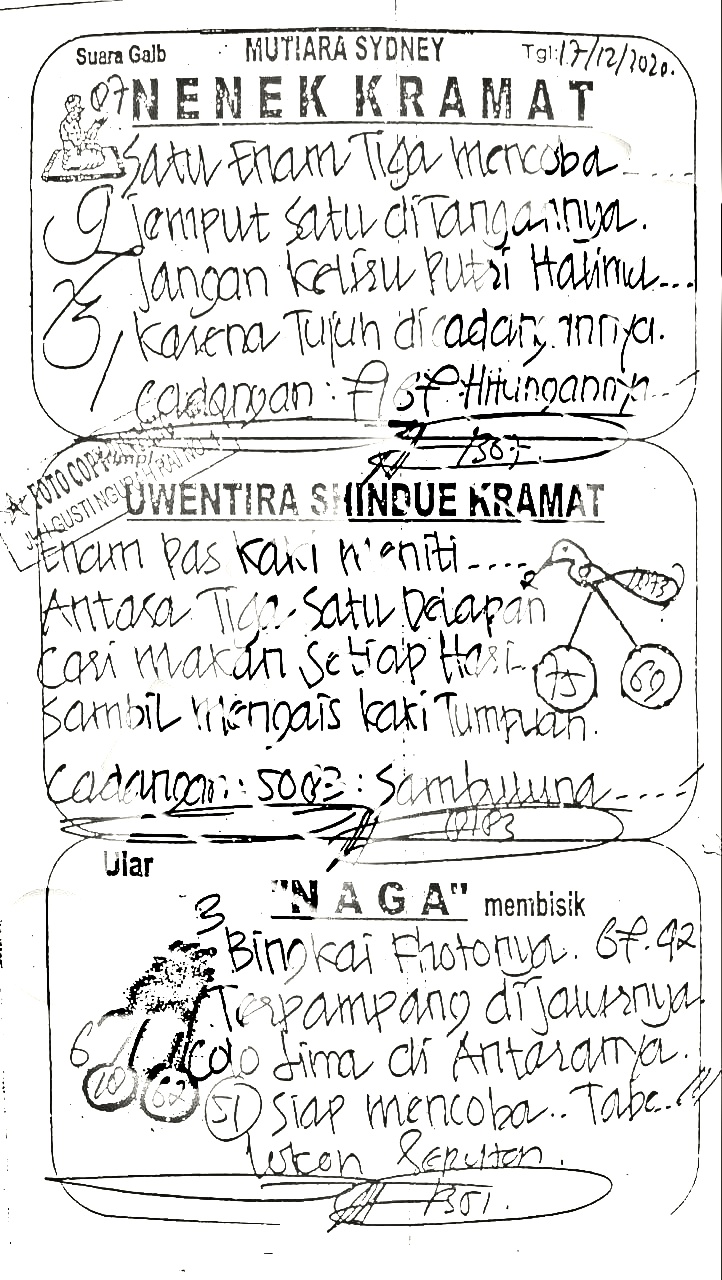 Suara Galb MUTIARA SYDNEY Tgl: 17/12/2020.
07 NENEK KRAMAT
Satu Enam Tiga mencoba ....
Jemput Satu diTangannya.
Jangan Keliru Putri Halimu...
Karena Tujuh dicadangannya.
Cadangan: Hitungannya
1307
FOTO COPY
UWENTIRA SHINDUE KRAMAT
Enam pas kaki meniti ....
Antara Tiga Satu Delapan
Cari makan Setiap Hari
75 69
Sambil mengais kaki Tumpuan.
Cadangan: 5083: Sambutuna ....
Ular
"NAGA" membisik
3
Bingkai Fhotonya. 67.92
Terpampang dijalurnya.
6
Colo Lima di Antaranya.
10 62
51 Siap mencoba.. Tabe..
1351.